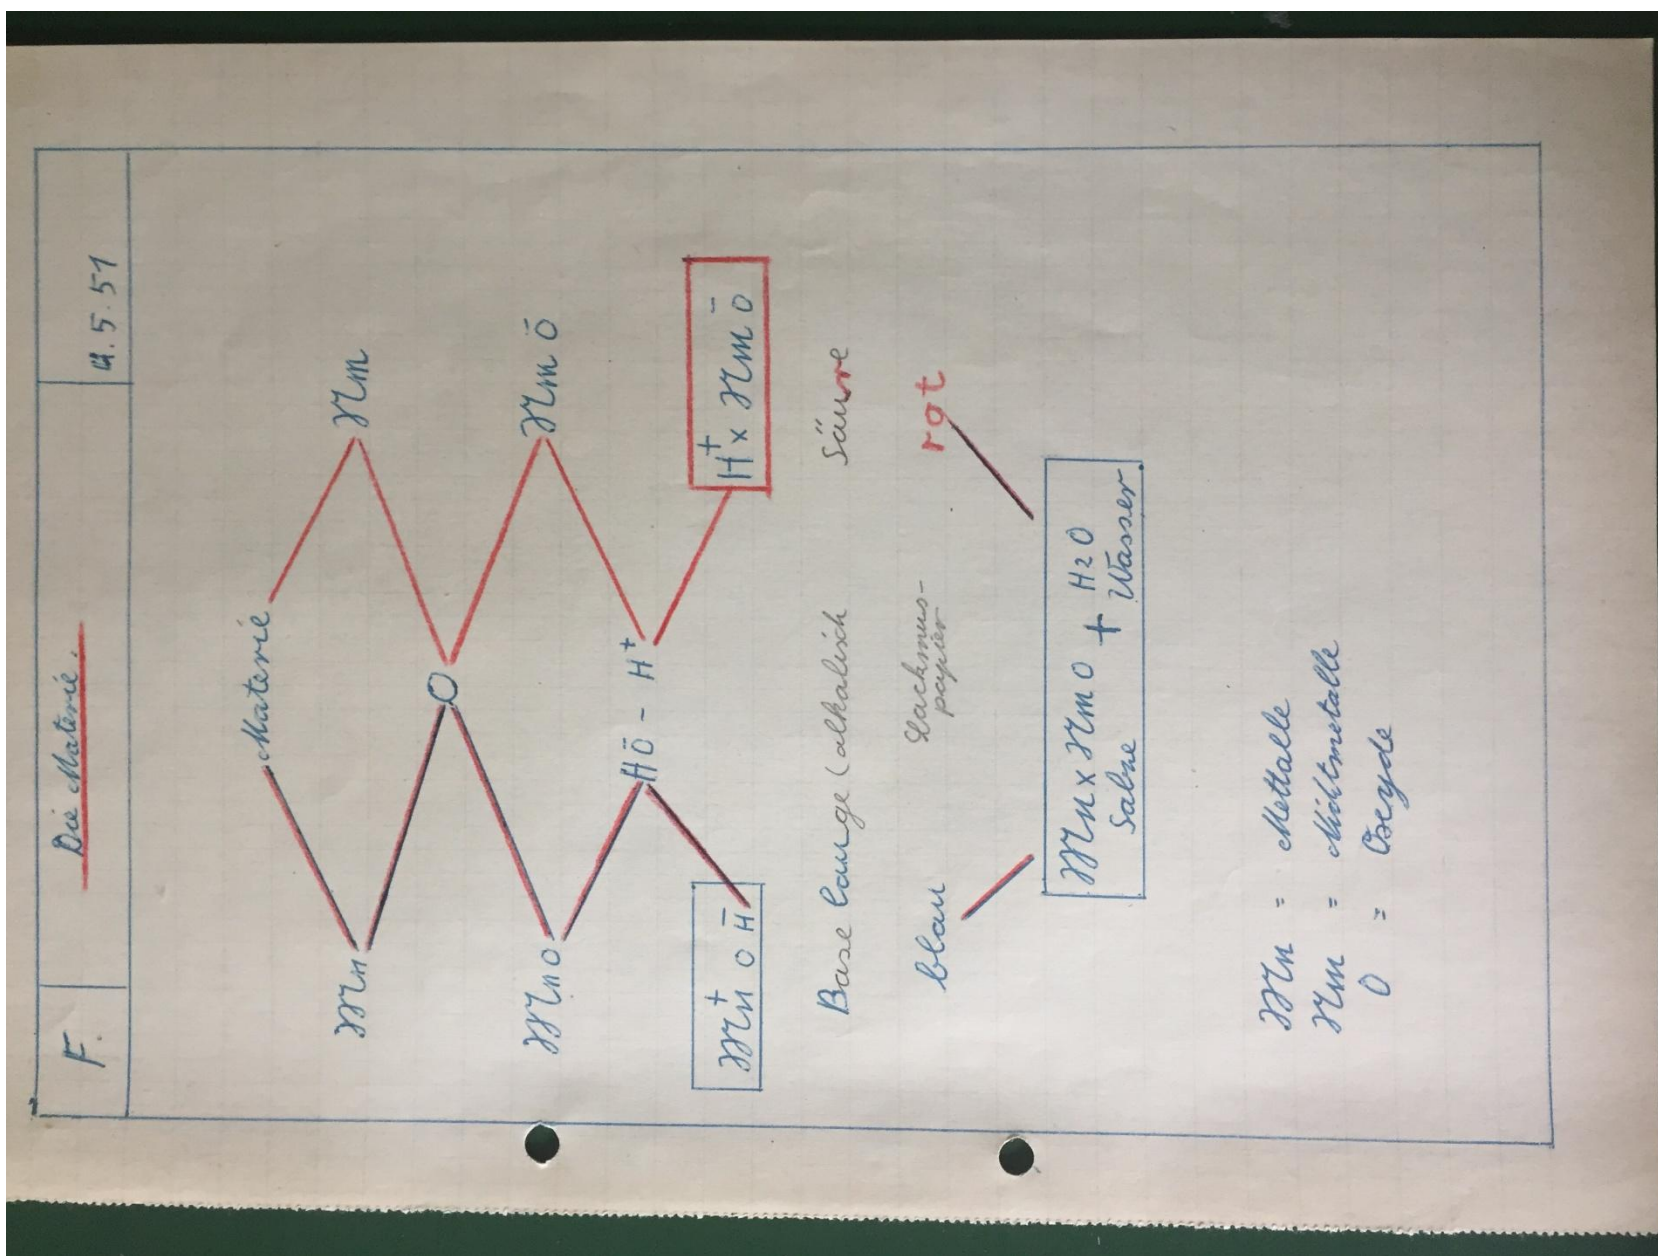 F. Die Materie. 4.5.51
Materie
Mn Nm
O
MnO NmŌ
HŌ - H⁺
Mn⁺ O H̄ H⁺ x Nm Ō
Base Lauge (alkalisch Säure
blau Lackmus- rot
papier
Mn x NmO + H2O
Salze Wasser
Mn = Mettalle
Nm = Nichtmetalle
O = Oxyde